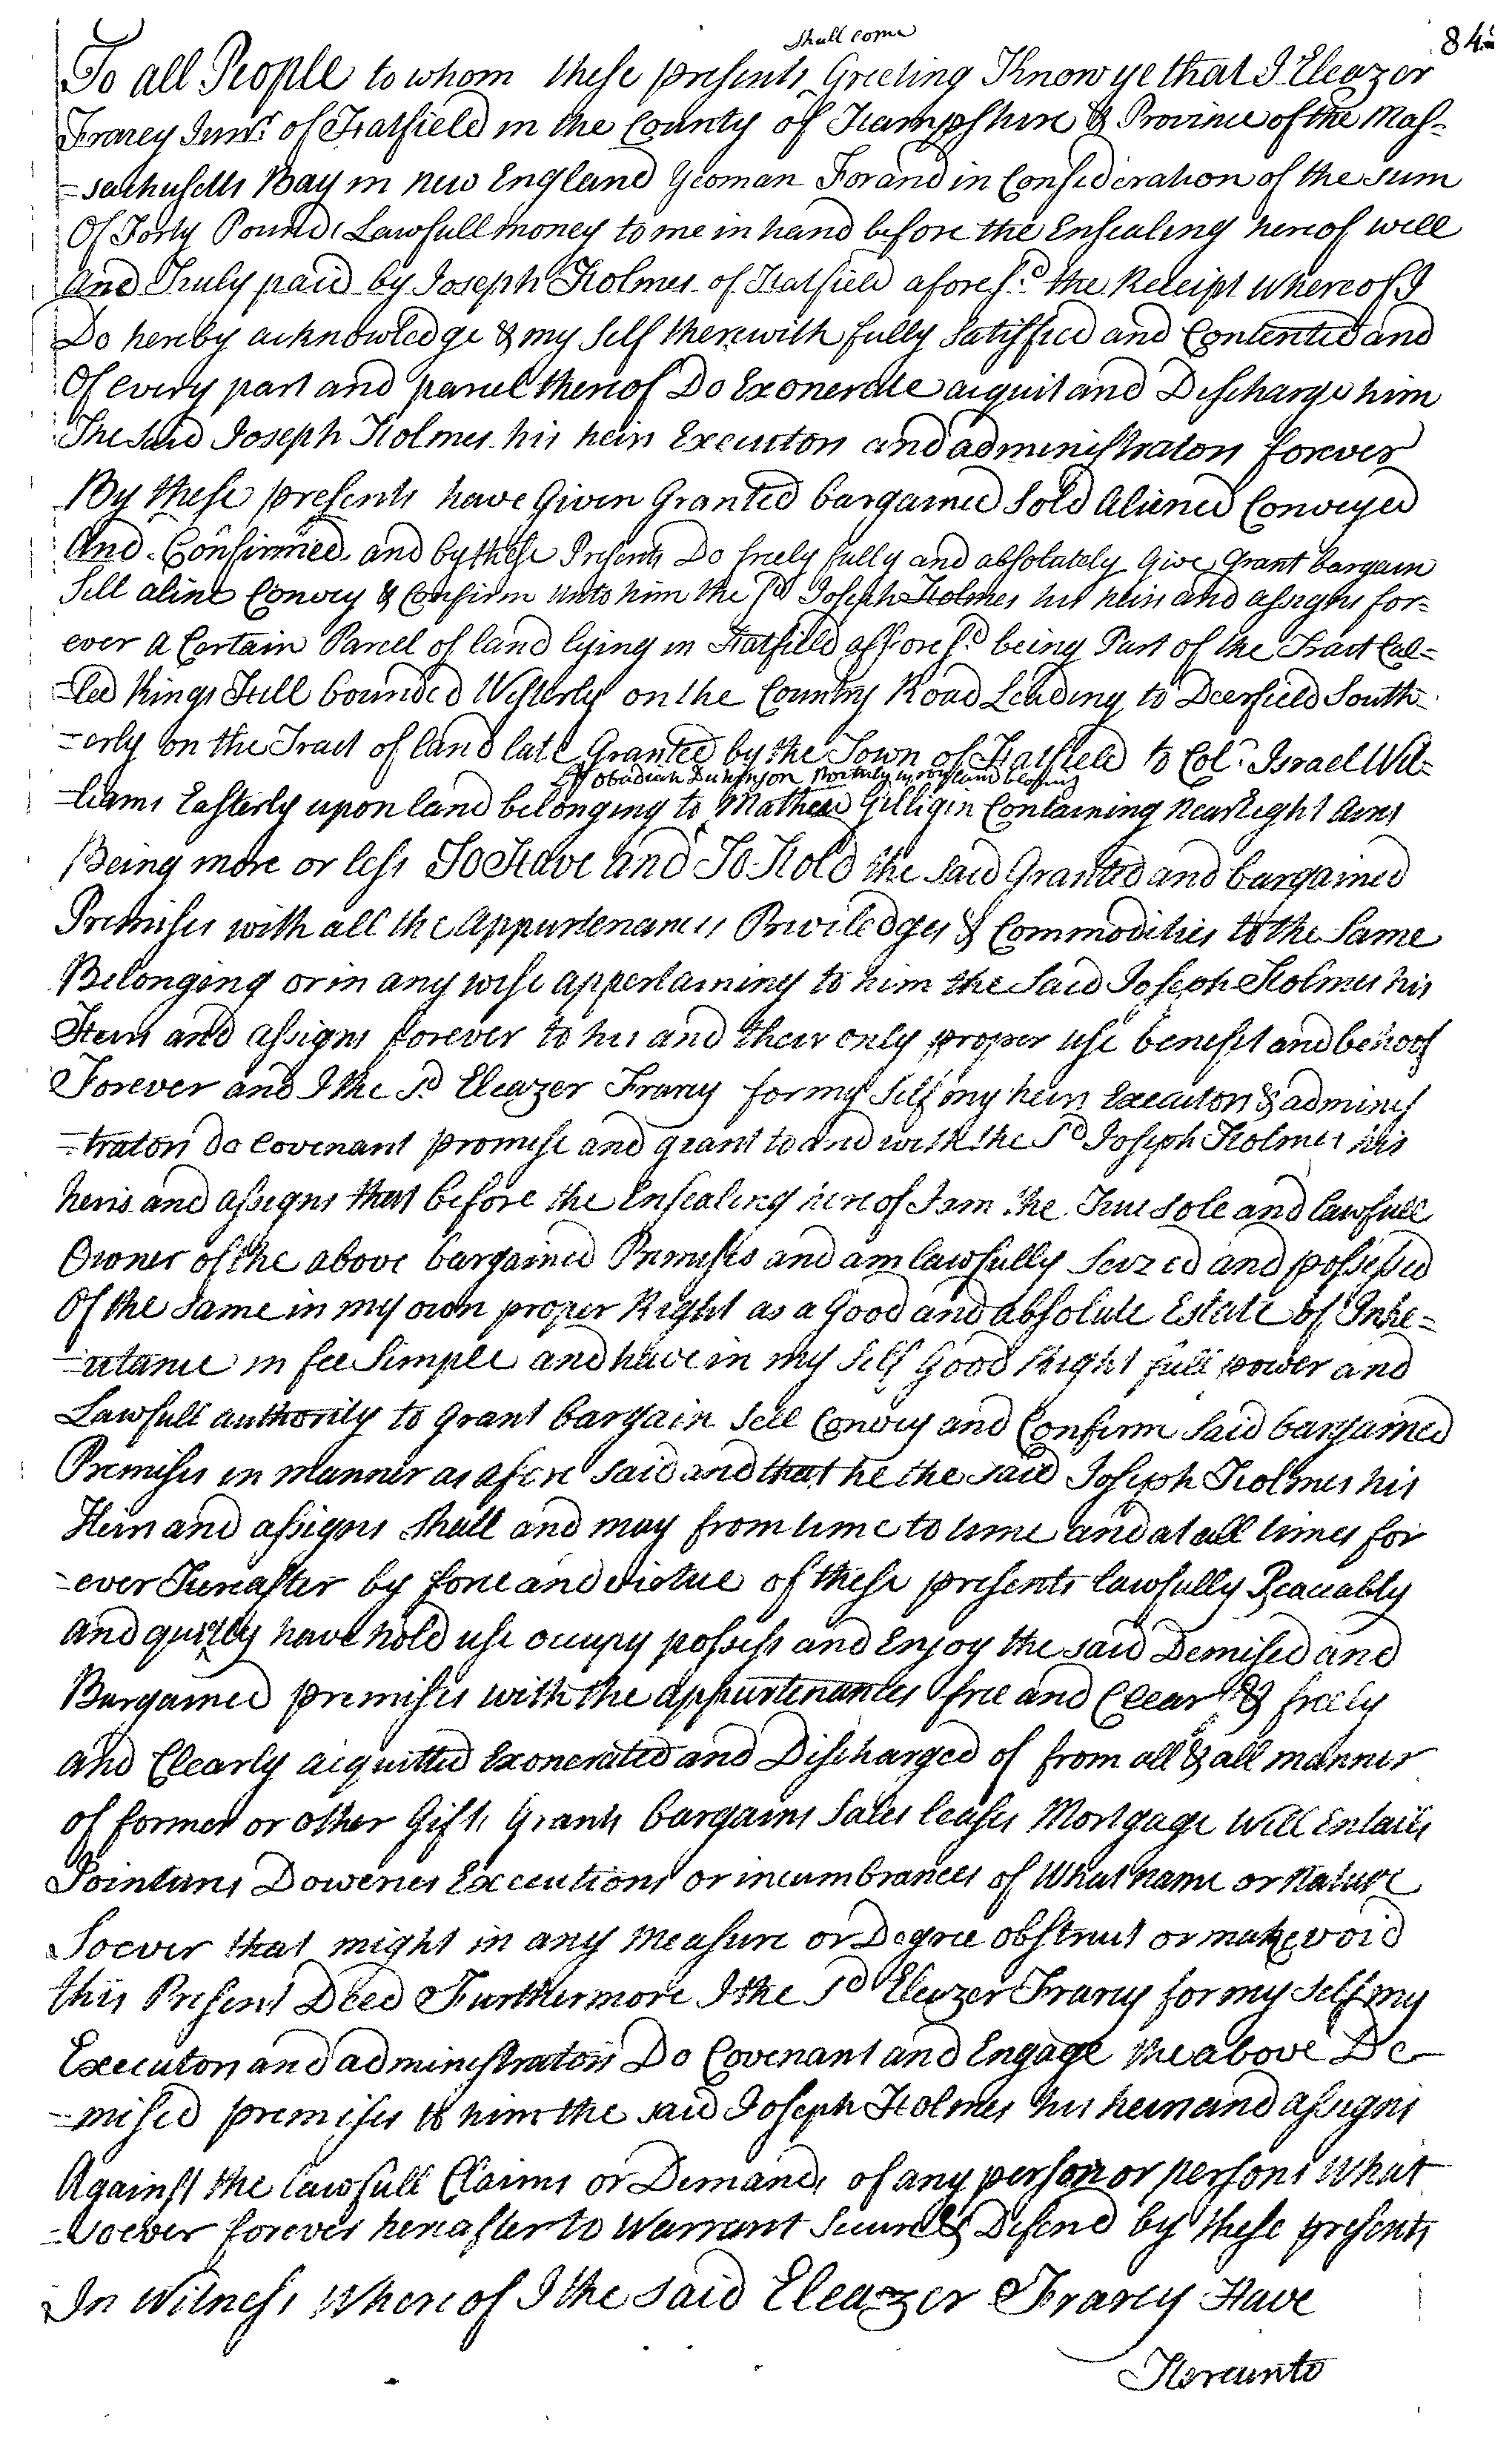 84
shall come
To all People to whom these presents Greeting Know ye that I Eleazer
Frarey Junr. of Hatfield in the County of Hampshire & Province of the Mas-
-sachusetts Bay in new England Yeoman For and in Consideration of the sum
Of Forty Pounds Lawfull money to me in hand before the Ensealing hereof well
And Truly paid by Joseph Holmes of Hatfield afores.d the Receipt whereof I
Do hereby acknowledge & my self therewith fully satisfied and Contented and
Of every part and parcel thereof Do Exonerate acquit and Discharge him
The said Joseph Holmes his heirs Executors and administrators forever
By these presents have Given Granted bargained Sold Aliened Conveyed
And Confirmed and by these Presents Do freely fully and absolutely Give Grant bargain
Sell aline Convey & Confirm unto him the sd Joseph Holmes his heirs and assigns for=
ever a Certain Parcel of land lying in Hatfield affores.d being Part of the Tract Cal=
-led Kings Hill bounded Westerly on the Country Road Leading to Deerfield South-
-erly on the Tract of land late Granted by the Town of Hatfield to Col.o Israel Wil=
Obadiah Dickinson Northerly upon land belong
-liams Easterly upon land belonging to Mathew Gilligin Containing near Eight Acres
Being more or less To Have and To Hold the said Granted and bargained
Premises with all the Appurtenances Priviledges & Commodities to the Same
Belonging or in any wise appertaining to him the Said Joseph Holmes his
Heirs and assigns forever to his and their only proper use benefit and behoof
Forever and I the s.d Eleazer Frary for my Self my heirs Executors & adminis
-trators do Covenant promise and grant to and with the sd Joseph Holmes his
heirs and assigns that before the Ensealing hereof I am the True sole and lawfull
Owner of the above bargained Premises and am lawfully Seized and possessed
Of the same in my own proper Right as a Good and absolute Estate of Inhe=
-ritance in fee Simple and have in my Self Good Right full power and
Lawfull authority to Grant bargain Sell Convey and Confirm Said bargained
Premises in manner as afore said and that he the said Joseph Holmes his
Heirs and assigns shall and may from time to time and at all times for
-ever Hereafter by force and virtue of these presents lawfully Peaceably
and quietly have hold use occupy possess and Enjoy the said Demised and
Bargained premises with the appurtenances free and Clear & freely
and Clearly acquitted Exonerated and Discharged of from all & all manner
of former or other Gifts Grants bargains Sales leases Mortgage Will Entails
Jointures Doweries Executions or incumbrances of What name or Nature
Soever that might in any Measure or Degree obstruct or make void
this Present Deed Furthermore I the sd Eleazer Frarey for my Self my
Executors and administrators Do Covenant and Engage the above De-
-mised premises to him the said Joseph Holmes his heirs and assigns
Against the lawfull Claims or Demands of any person or persons What
-soever forever hereafter to Warrant Secure & Defend by these presents
In Witness Whereof I the said Eleazer Frarey Have
Hereunto